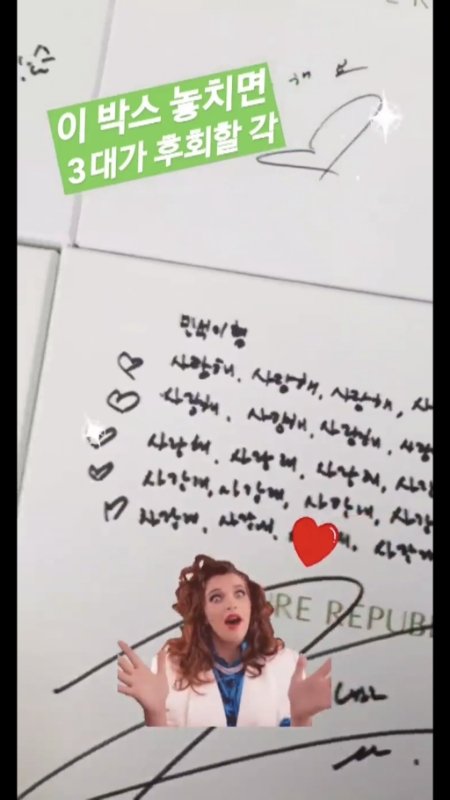 해요
이 박스 놓치면
3대가 후회할 각
민석이형
사랑해. 사랑해, 사랑해,
사랑해. 사랑해, 사랑해. 사랑
사랑해. 사랑해. 사랑해, 사랑
사랑해, 사랑해, 사랑해, 사랑
사랑해, 사랑해. 사랑해
URE REPUB